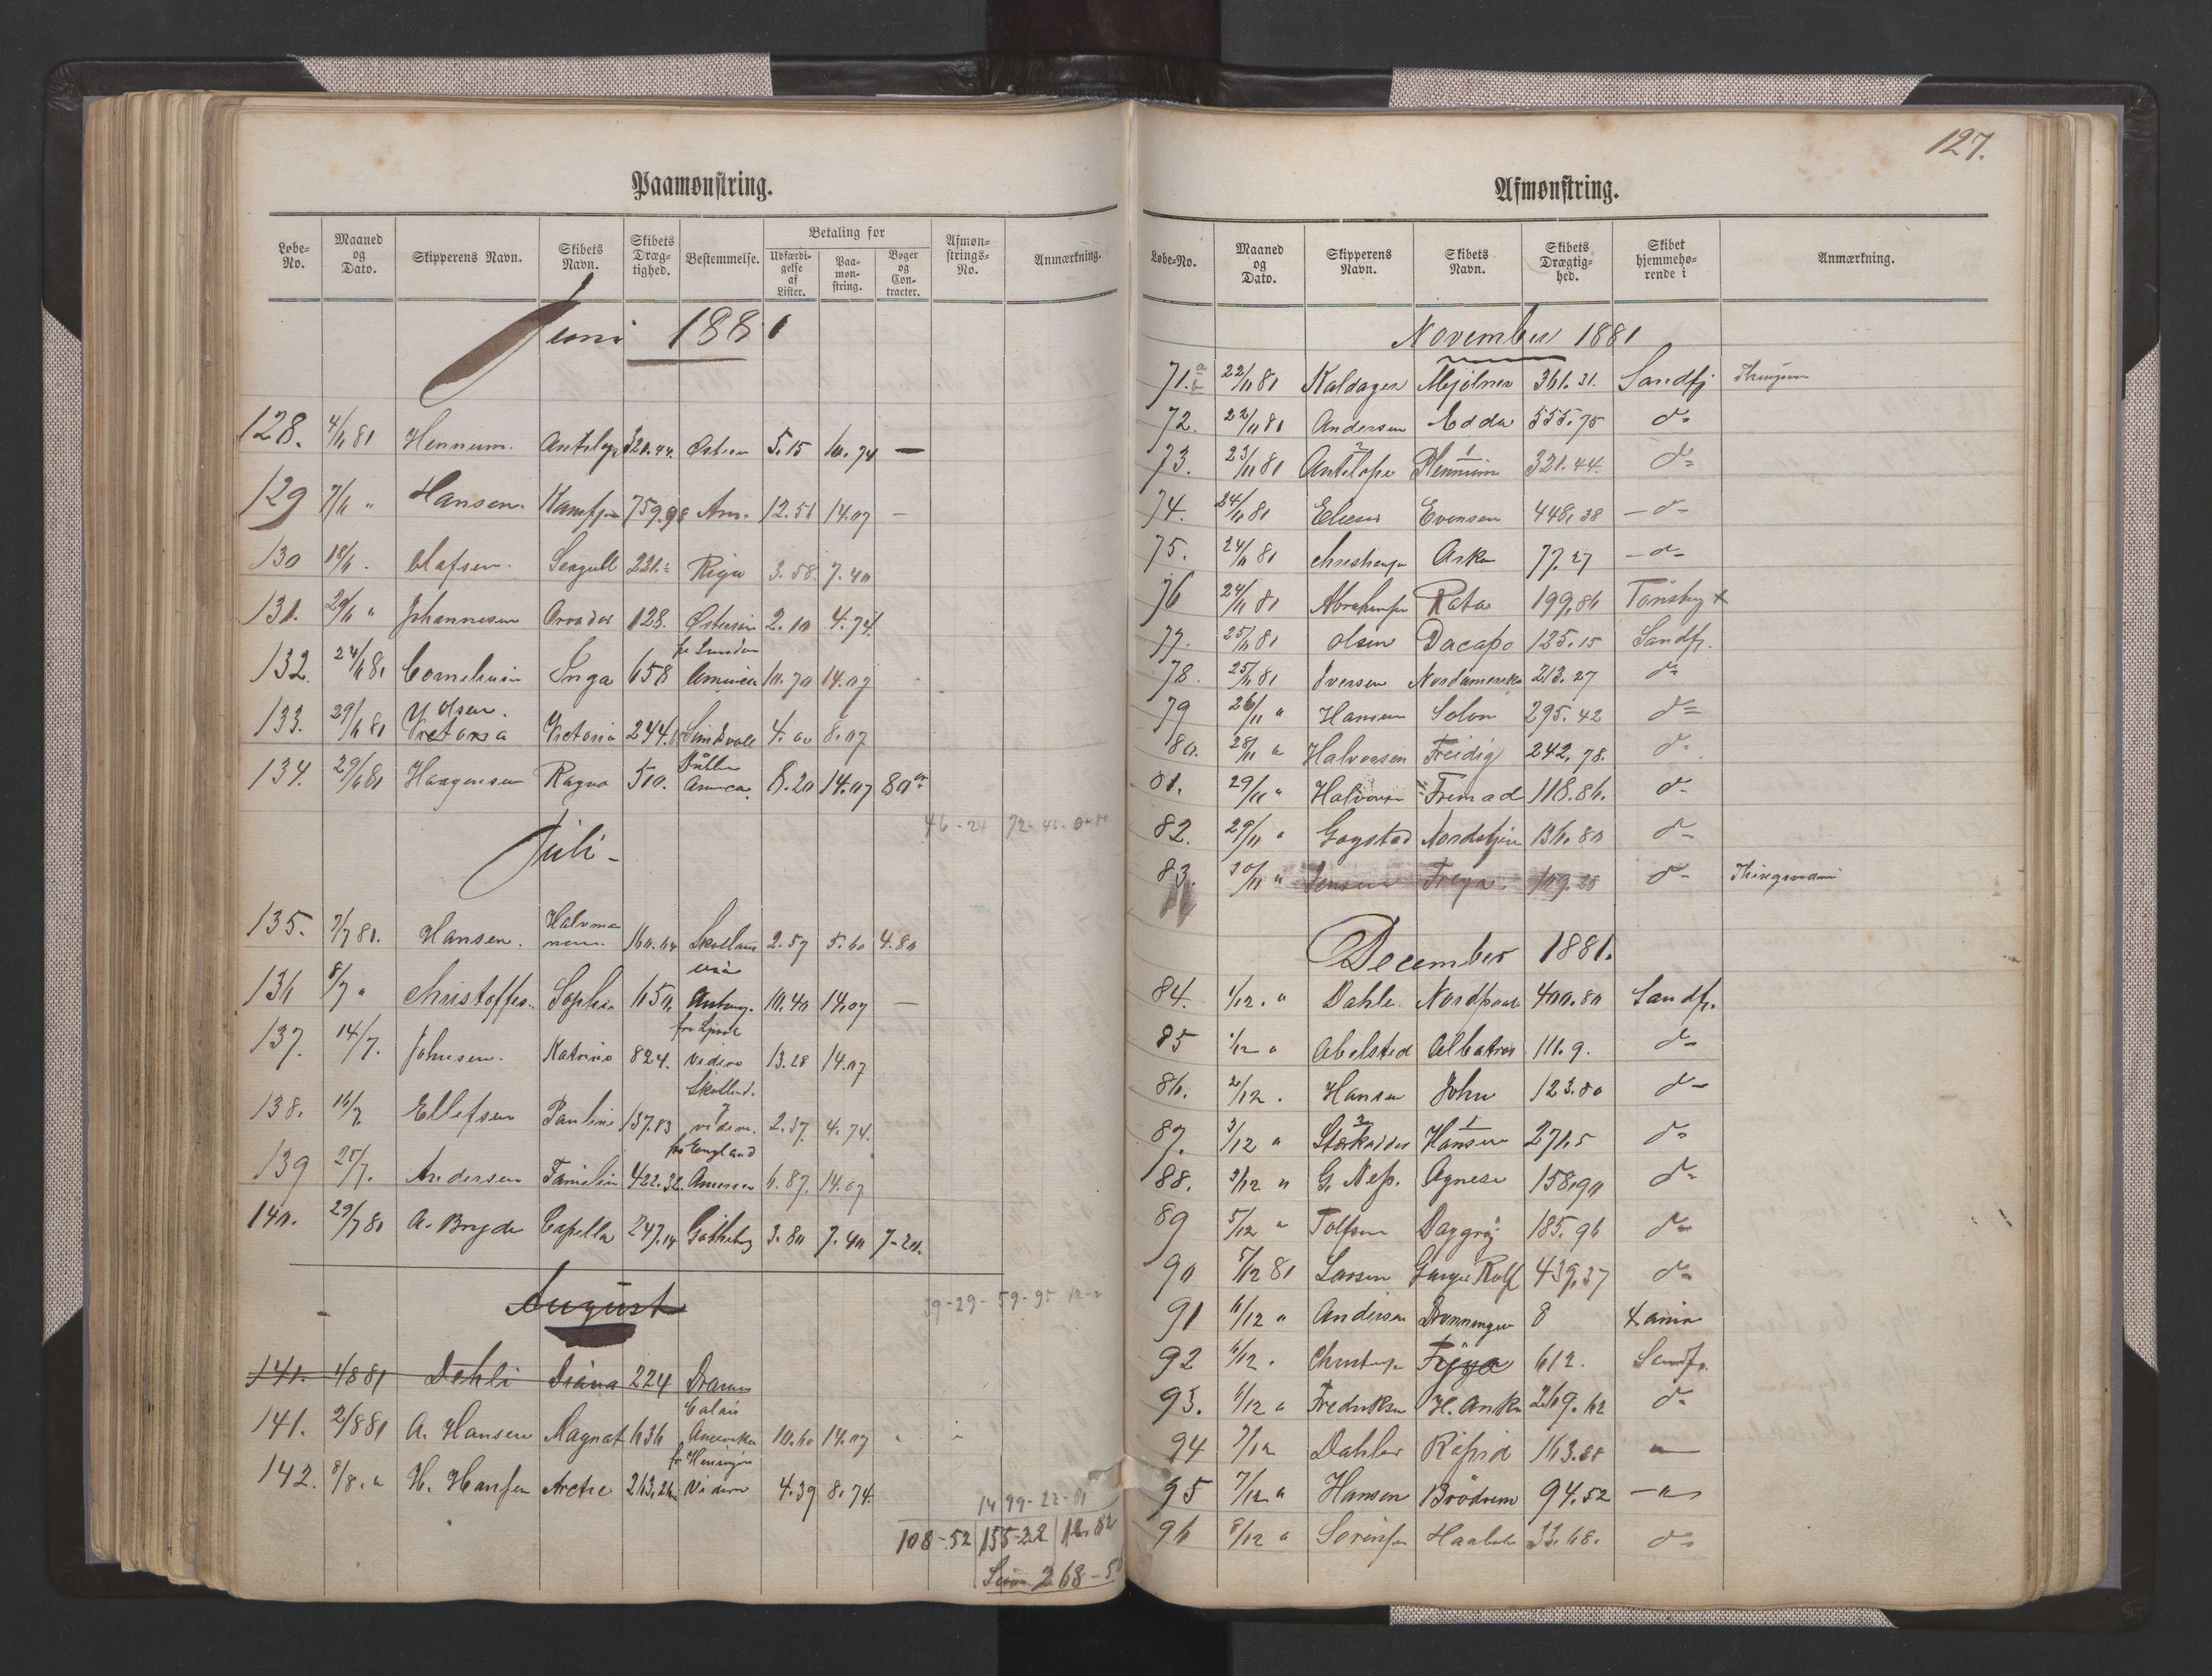 Paamønstring.
Løbe-No. | Maaned og Dato. | Skipperens Navn. | Skibets Navn. | Skibets Dræg-tighed. | Bestemmelse. | Betaling for | Udfærdi-gelse af Lister. | Paa-møn-string. | Bøger og Con-tracter. | Afmøn-strings-No. | Anmærkning.
Juni 1881
128. 4/6 81 Hennum. Antelope 321.44. Østersø 5.15 10.74 —
129 7/6 " Hansen. 759.98 Am. 12.51 14.07 —
130 18/6 . Olafsen. Seagull 221. Riga 3.58. 7.40
131. 20/6 " Johannesen 128. Østersøen 2.10 4.74.
132. 24/6 81 Cornelius Inga 658 America 10.70 14.07
133. 29/6 81 Olsen. Victoria Victoria 244. Sundsvall 4.00 8.07
134. 29/6 81 Haagensen Ragna 510. America. 8.20 14.07 80
46-24 72-46-0-80
Juli -
135. 7/7 81. Hansen. 160.64 2.57 5.60 4.80
136 8/7 " Christoffes. Sophie 650. 10.40 14.07 —
137. 14/7. Johnsen. Katrine 824. videre 13.28 14.07
138. 16/7. Ellefsen Pauline 137.83 Skotland. videre. 2.37. 4.74.
139 25/7. Andersen Familien 422.32. for England America 6.87. 14.07
140. 29/7 81 A. Bryde Capella 247.14 Gøtheborg 3.80 7.40 7-20.
39-29-59-95 12-
August
141. 1/8 81 Dehli Diana 224 Dramm
141. 2/8 81 A. Hansen Magnat 636 Calais Amerika 10.60 14.07
142. 8/8. " H. Hansen Arctic 263.26 videre 4.39 8.74.
14 99-22-01
108-52 155-22 12.82
Sum 268-5
127.
Afmønstring.
Løbe-No. | Maaned og Dato. | Skipperens Navn. | Skibets Navn. | Skibets Drægtig-hed. | Skibet hjemmehø-rende i | Anmærkning.
November 1881
71. 22/11 81 Kaldager Mjølner 361.31. Sandfj
72. 22/11 81 Andersen Edda 555.75 do
73. 23/11 81 Antelope Hennum 321.44. do
74. 24/11 81 Elieser Evensen 448.38 — do
75. 24/11 81 Christensen Askø 77.27 — do
76 24/11 81 Abrahamsen Rota 199,86 Tønsberg x
77. 25/11 81 Olsen Dacapo 125.15 Sandfj.
78. 25/11 81 Iversen Nordamerika 213.27 do
79 26/11 " Hansen Solon 295.42 do
80. 28/11 " Halvorsen Freidig 242,78. do
81. 29/11 " Halvorsen Fremad 118.86. do
82. 29/11 " Gogstad Nordstjern 136.80 do
83. 30/11 " Jensen Freya 109.28 do
December 1881.
84. 1/12. " Dahl. 400.80 Sandfj.
85 1/12 " Abelsted Albatros 111.9. do
86. 2/12. Hansen John 123.80 do
87. 3/12 " Stærkodder Hansen 271.5 do
88. 3/12 " G. Nep. Agnese 158.90 do
89 5/12 " Tolfsen Daggry 185.96 do
90 5/12 81 Larsen Ganger Rolf 439.37 do
91 6/12 " Andersen Dronningen 8 Xania
92 6/12. Christensen Freya 612. Sandfj.
93. 6/12 " Fredriksen H. Anker 269.62 do
94 7/12 Dahler 163.88 "
95 7/12 " Hansen Brødrene 94.52 — " —
96 8/12 " Sørensen Haabet 33.68. do